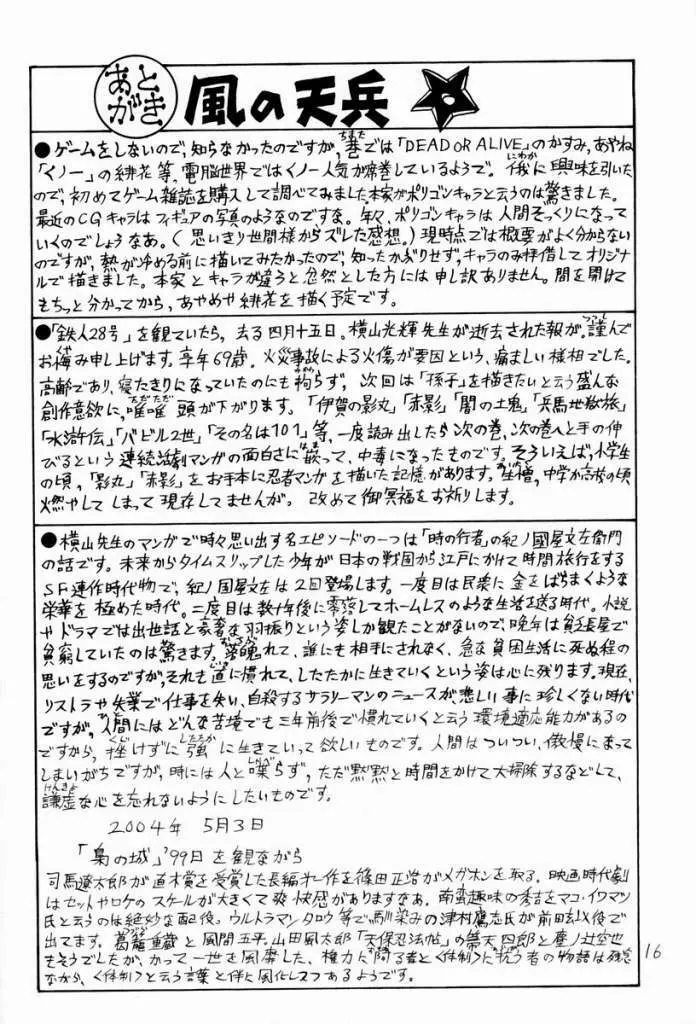 あとがき 風の天兵
●ゲームをしないので,知らなかったのですが,巷では「DEAD OR ALIVE」のかすみ,あやね
「くノ一」の緋花等,電脳世界ではくノ一人気が席巻しているようで。俄に興味を引いた
ので,初めてゲーム雑誌を購入して調べてみました。本家がポリゴンキャラと云うのは驚きました。
最近のCGキャラはフィギュアの写真のようなのですな。年々,ポリゴンキャラは人間そっくりになって
いくのでしょうなあ。(思いきり世間様からズレた感想。)現時点では概要がよく分からない
のですが,熱が冷める前に描いてみたかったので,知ったかぶりせず,キャラのみ拝借してオリジナ
ルで描きました。本家とキャラが違うと忽然とした方には申し訳ありません。間を開けて
もちっと分かってから,あやめや緋花を描く予定です。
●「鉄人28号」を観ていたら,去る四月十五日。横山光輝先生が逝去された報が。謹んで
お悔み申し上げます。享年69歳。火災事故による火傷が要因という,痛ましい様相でした。
高齢であり,寝たきりになっていたのにも拘らず,次回は「孫子」を描きたいと云う盛んな
創作意欲に,唯唯頭が下がります。「伊賀の影丸」「赤影」「闇の土鬼」「兵馬地獄旅」
「水滸伝」「バビル2世」「その名は101」等,一度読み出したら次の巻,次の巻へと手の伸
びるという連続活劇マンガの面白さに嵌って,中毒になったものです。そういえば,小学生
の頃,「影丸」「赤影」をお手本に忍者マンガを描いた記憶があります。生憎,中学か高校の頃
燃やしてしまって現存してませんが。改めて御冥福をお祈りします。
●横山先生のマンガで時々思い出す名エピソードの一つは「時の行者」の紀ノ國屋文左衛門
の話です。未来からタイムスリップした少年が日本の戦国から江戸にかけて時間旅行をする
SF連作時代物で,紀ノ国屋文左は2回登場します。一度目は民衆に金をばらまくような
栄華を極めた時代。二度目は数十年後に零落してホームレスのような生活を送る時代。小説
やドラマでは出世話と豪奢な羽振りという姿しか観たことがないので,晩年は貧乏長屋で
貧窮していたのは驚きます。落魄れて,誰にも相手にされなく,急な貧困生活に死ぬ程の
思いをするのですが,それも直に慣れて,したたかに生きていくという姿は心に残ります。現在,
リストラや失業で仕事を失い,自殺するサラリーマンのニュースが,悲しい事に珍しくない時代
ですが,人間にはどんな苦境でも三年前後で慣れていくと云う環境適応能力があるの
ですから,挫けずに強に生きていって欲しいものです。人間はついつい,傲慢になって
しまいがちですが,時には人と喋らず,ただ黙黙と時間をかけて大掃除するなどして,
謙虚な心を忘れないようにしたいものです。
2004年 5月3日
「梟の城」'99日を観ながら
司馬遼太郎が直木賞を受賞した長編第一作を篠田正浩がメガホンを取る。映画時代劇
はセットやロケのスケールが大きくて爽快感がありますなあ。南蛮趣味の秀吉をマコ・イワマツ
氏と云うのは絶妙な配役。ウルトラマンタロウ等で馴染みの津村鷹志氏が前田玄以役で
出てます。葛籠重蔵と風間五平。山田風太郎「天保忍法帖」の
もそうでしたが,かつて一世を風靡した,権力に阿る者と〈体制〉に抗う者の物語は残念
ながら,〈体制〉と云う言葉と伴に風化しつつあるようです。
16